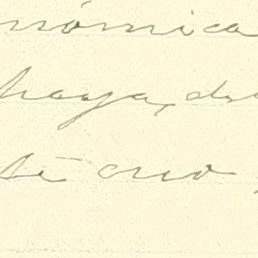 nómica
haya, de
te creo